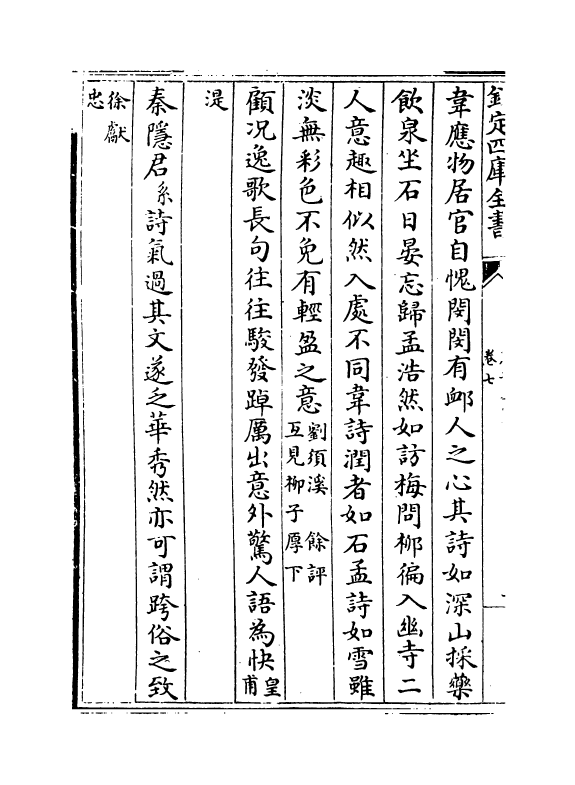 欽定四庫全書
卷七
韋應物居官自愧閔閔有衈人之心其詩如深山採藥
飲泉坐石日晏忘歸孟浩然如訪梅問柳徧入幽寺二
人意趣相似然入處不同韋詩潤者如石孟詩如雪雖
淡無彩色不免有輕盈之意劉須溪 餘評互見柳子厚下
顧况逸歌長句往往駿發踔厲出意外驚人語為快皇甫
湜
秦隱君系詩氣過其文遂乏華秀然亦可謂跨俗之致
徐獻忠